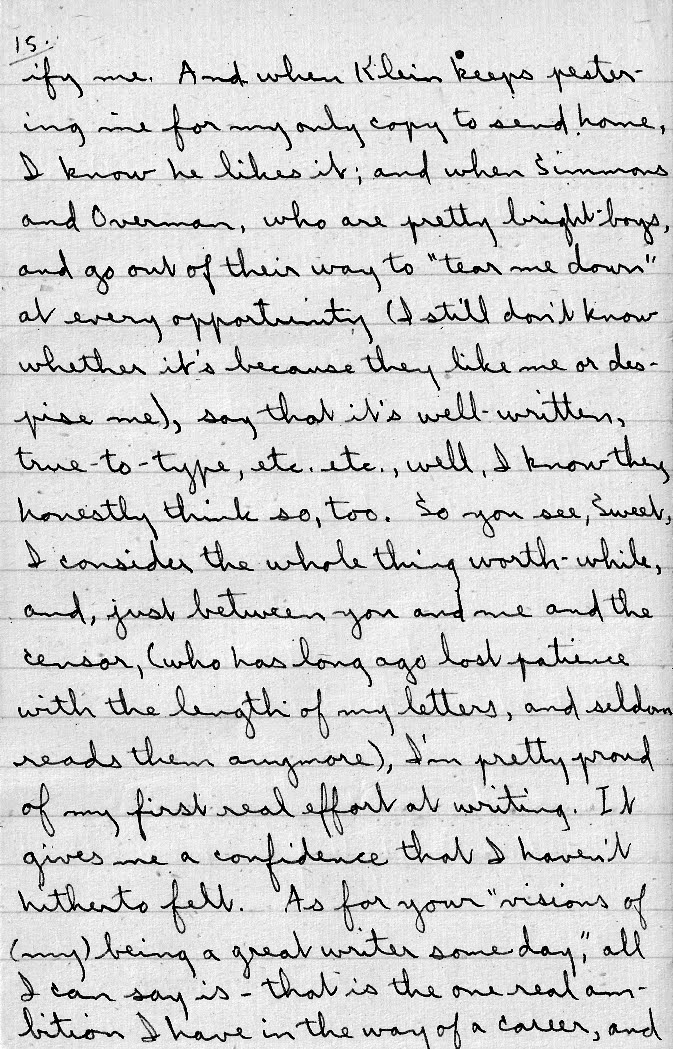 15.
ify me. And when Klein keeps pester-
ing me for my only copy to send home,
I know he likes it; and when Simmons
and Overman, who are pretty bright boys,
and go out of their way to "tear me down"
at every opportunity (I still don't know
whether it's because they like me or des-
pise me), say that it's well-written,
true-to-type, etc. etc., well, I know they
honestly think so, too. So you see, Sweet,
I consider the whole thing worth-while,
and, just between you and me and the
censor, (who has long ago lost patience
with the length of my letters, and seldom
reads them anymore), I'm pretty proud
of my first real effort at writing. It
gives me a confidence that I haven't
hitherto felt. As for your "visions of
(my) being a great writer some day," all
I can say is - that is the one real am-
bition I have in the way of a career, and